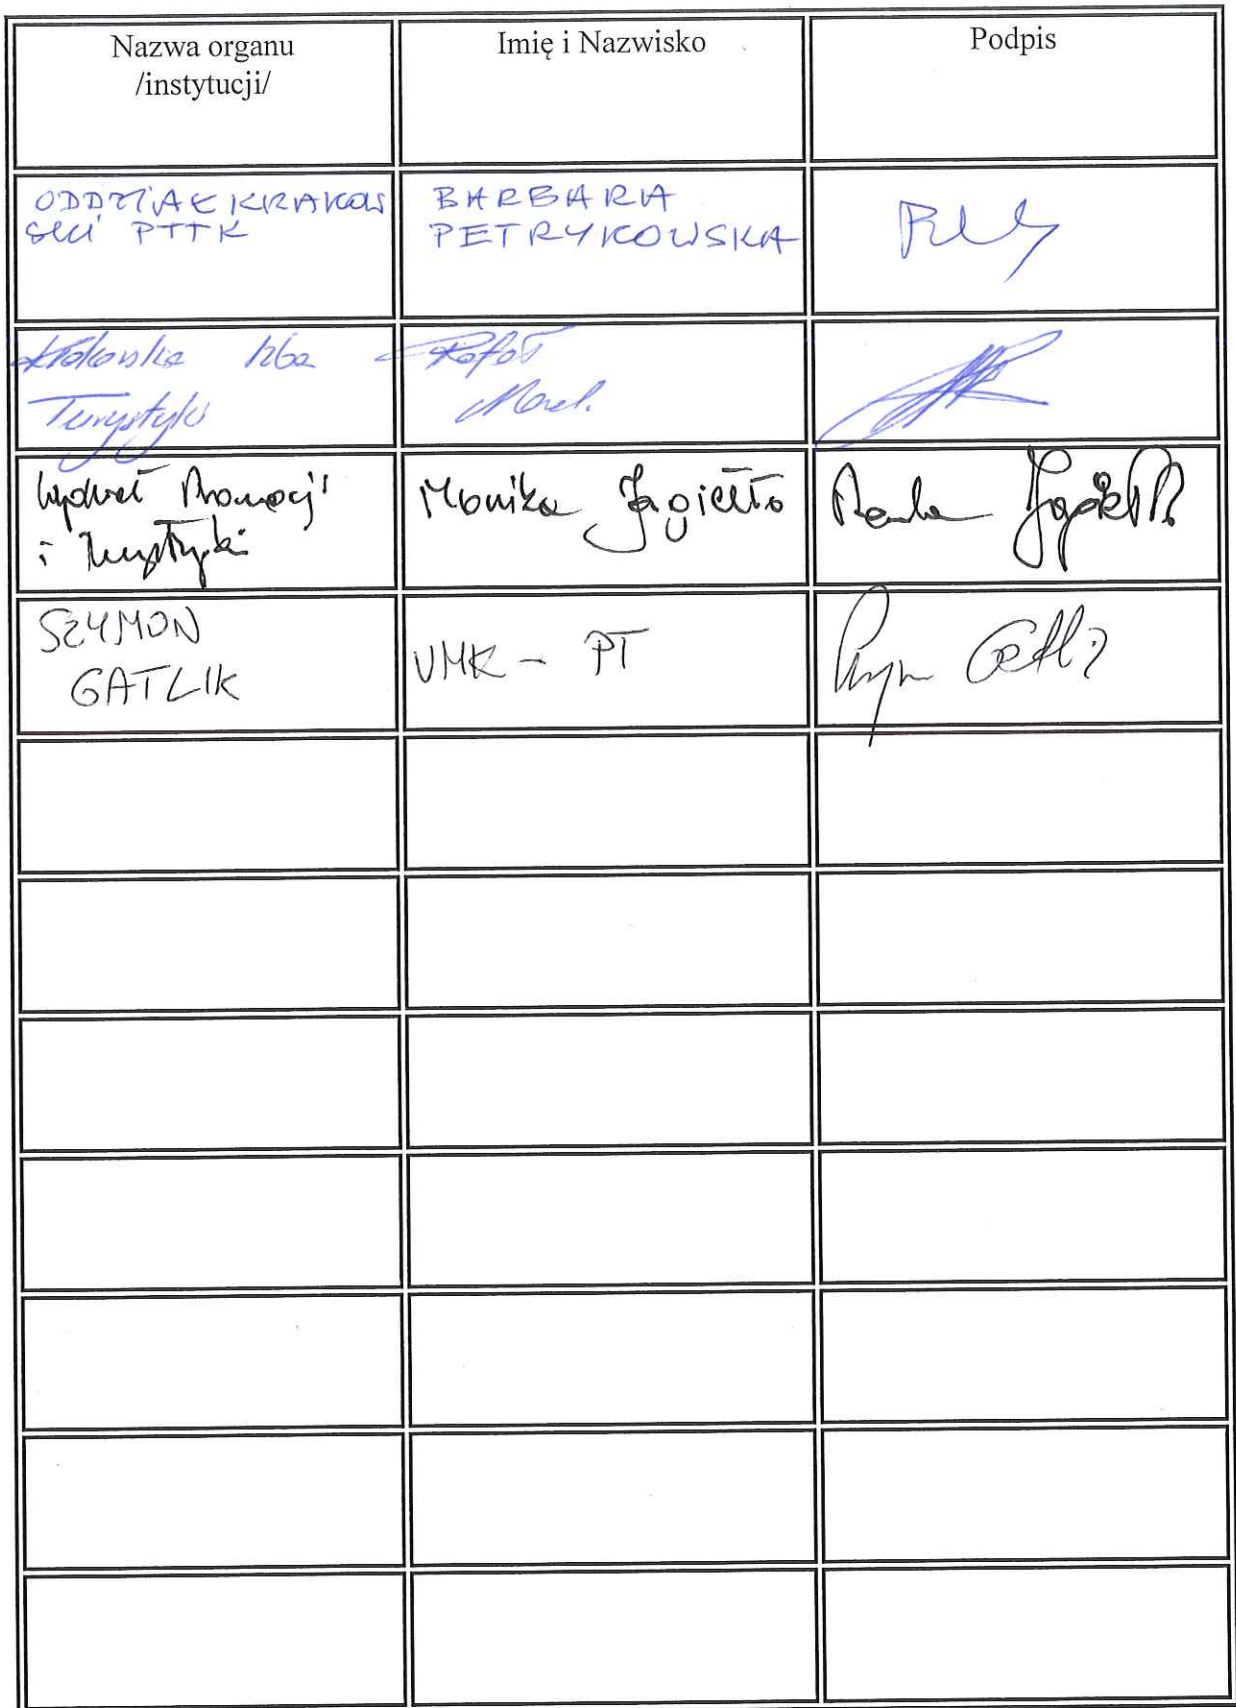 Nazwa organu
/instytucji/
Imię i Nazwisko
Podpis
ODDZIAŁ KRAKOW
SKI PTTK
BARBARA
PETRYKOWSKA
Krakowska Izba
Turystyki
Rafał
Marek
Wydział Promocji
i Turystyki
Monika Jagiełło
SZYMON
GATLIK
UMK - PT